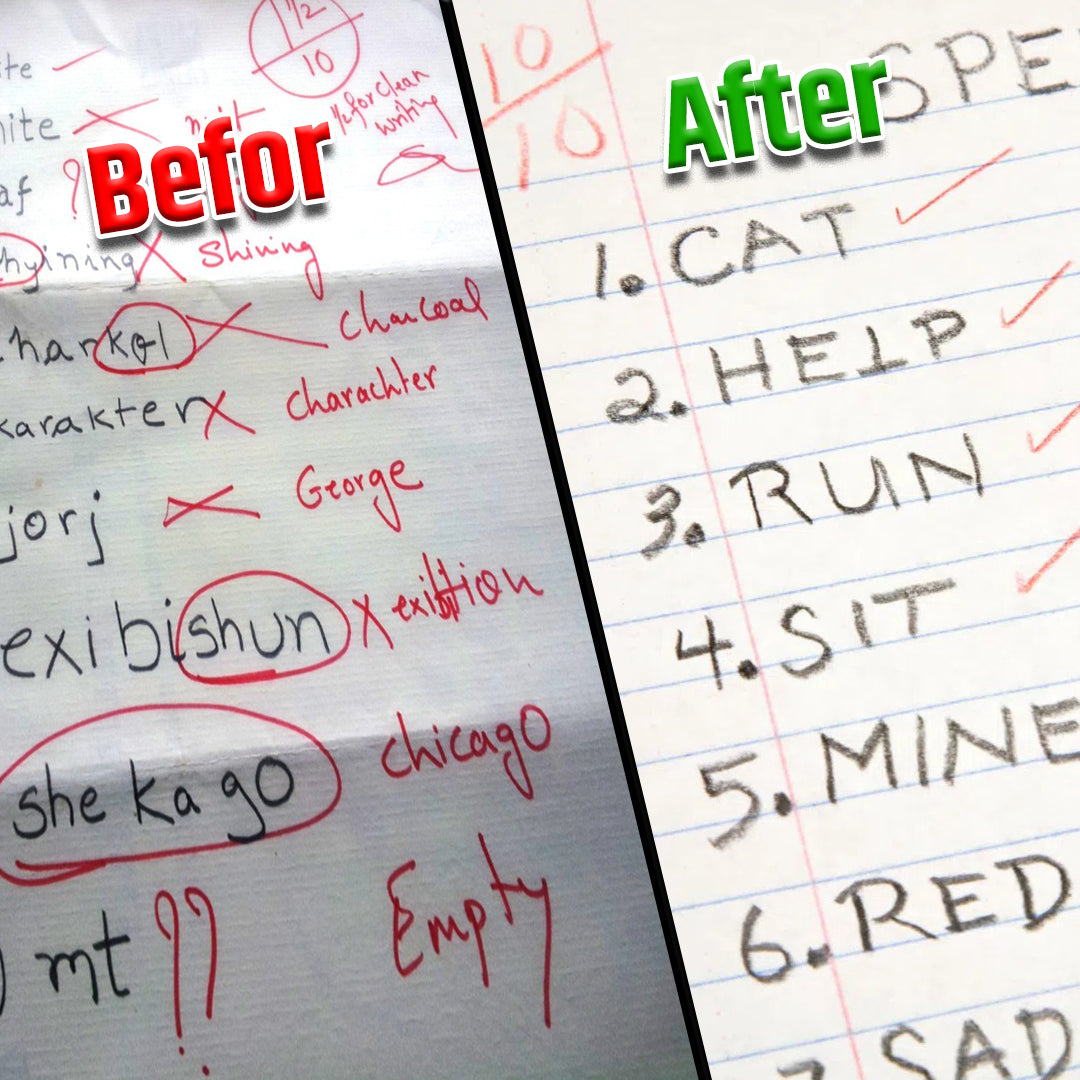 1/2
10
ite
hite
1/2 for clean writing
Befor
af ?
hyining X Shining
harkol X Charcoal
karakter X Charachter
jorj X George
exibishun X exibition
she ka go chicago
mt ?? Empty
10
10
After
SPE
1. CAT
2. HELP
3. RUN
4. SIT
5. MINE
6. RED
7. SAD